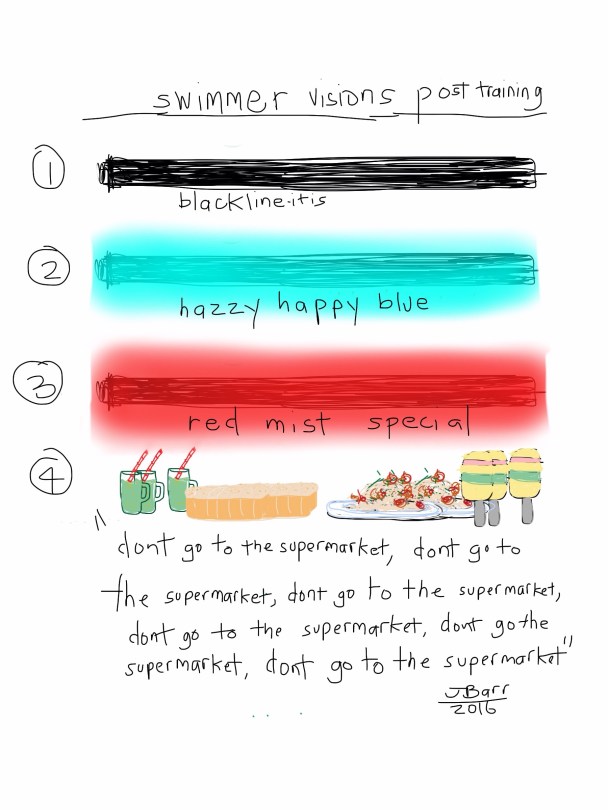 swimmer visions post training
1
blackline-itis
2
hazzy happy blue
3
red mist special
4
"dont go to the supermarket, dont go to
the supermarket, dont go to the supermarket,
dont go to the supermarket, dont go the
supermarket, dont go to the supermarket"
JBarr
2016